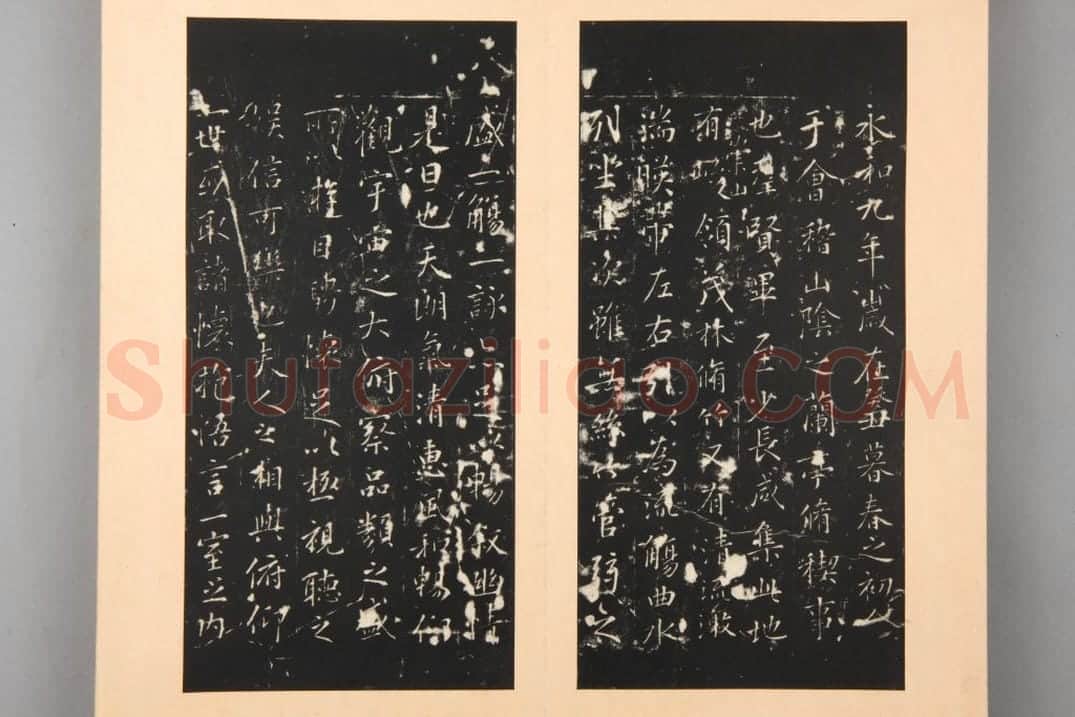 永和九年歲在癸丑暮春之初
于會稽山陰之蘭亭脩稧事
也羣賢畢至少長咸集此地
有崇山領茂林脩竹又有清流激
湍暎帶左右引以為流觴曲水
列坐其次雖無絲竹管弦之
盛一觴一詠足暢敘幽情
是日也天朗氣清惠風和暢仰
觀宇宙之大俯察品類之盛
所遊目騁懷足以極視聽之
娛信可樂也夫人之相與俯仰
一世或取諸懷抱悟言一室之內
Shufaziliao.COM